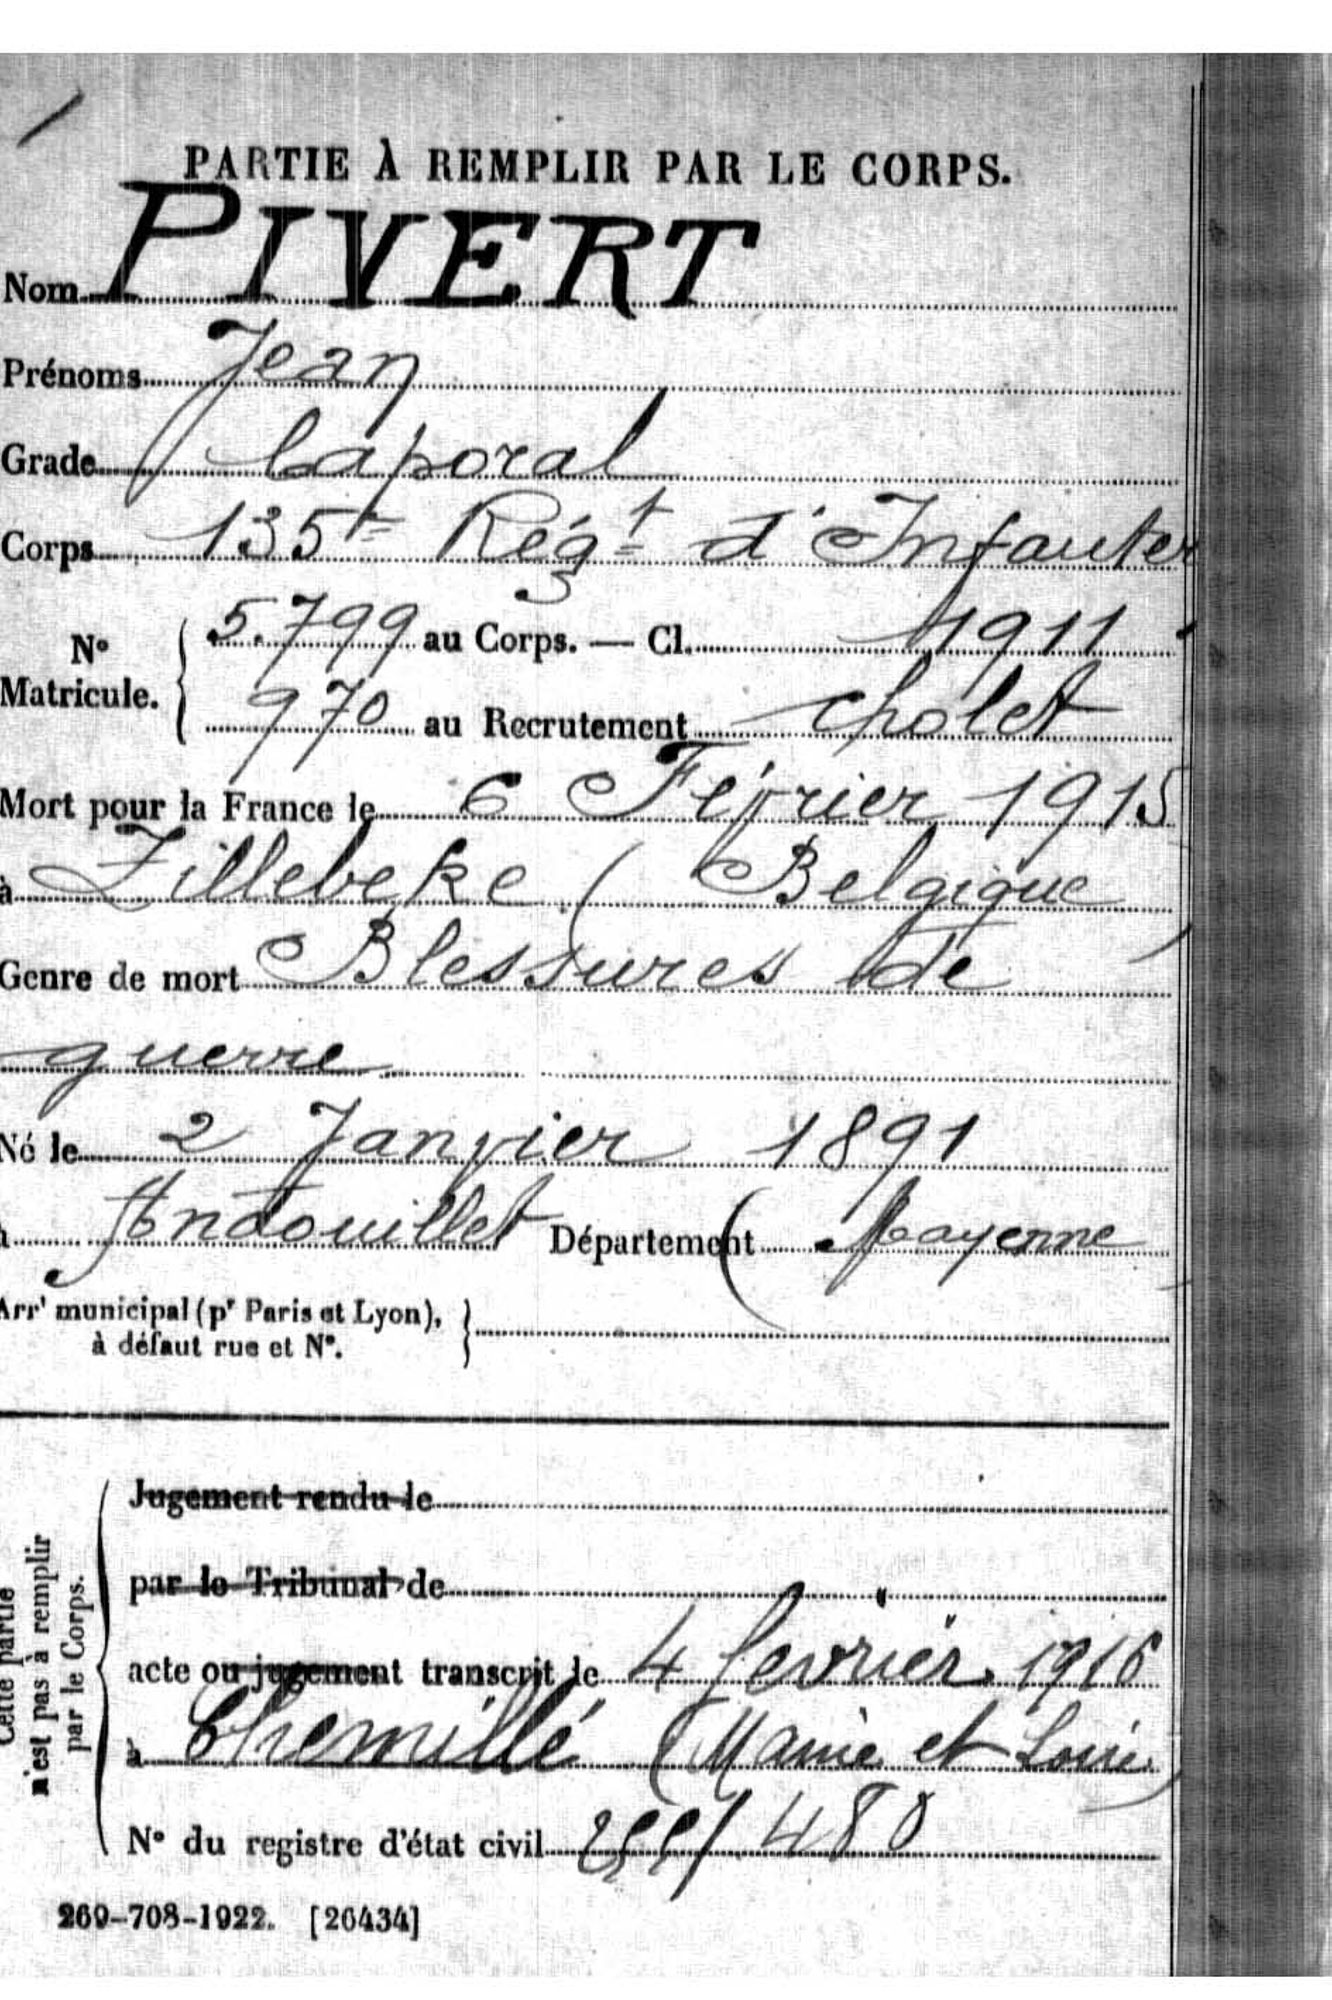 PARTIE À REMPLIR PAR LE CORPS.
Nom PIVERT
Prénoms Jean
Grade Caporal
Corps 135e Régt d'Infanter
N° Matricule. { 5.799 au Corps. — Cl. 1911
970 au Recrutement Cholet
Mort pour la France le 6 Février 1915
à Zillebeke (Belgique)
Genre de mort Blessures de
guerre
Né le 2 Janvier 1891
à Andouillet Département (Mayenne
Arrt municipal (pr Paris et Lyon),
à défaut rue et N°.
Cette partie
n'est pas à remplir
par le Corps.
Jugement rendu le
par le Tribunal de
acte ou jugement transcrit le 4 février 1916
à Chemillé (Maine et Loire)
N° du registre d'état civil 480
269-708-1922. [26434]